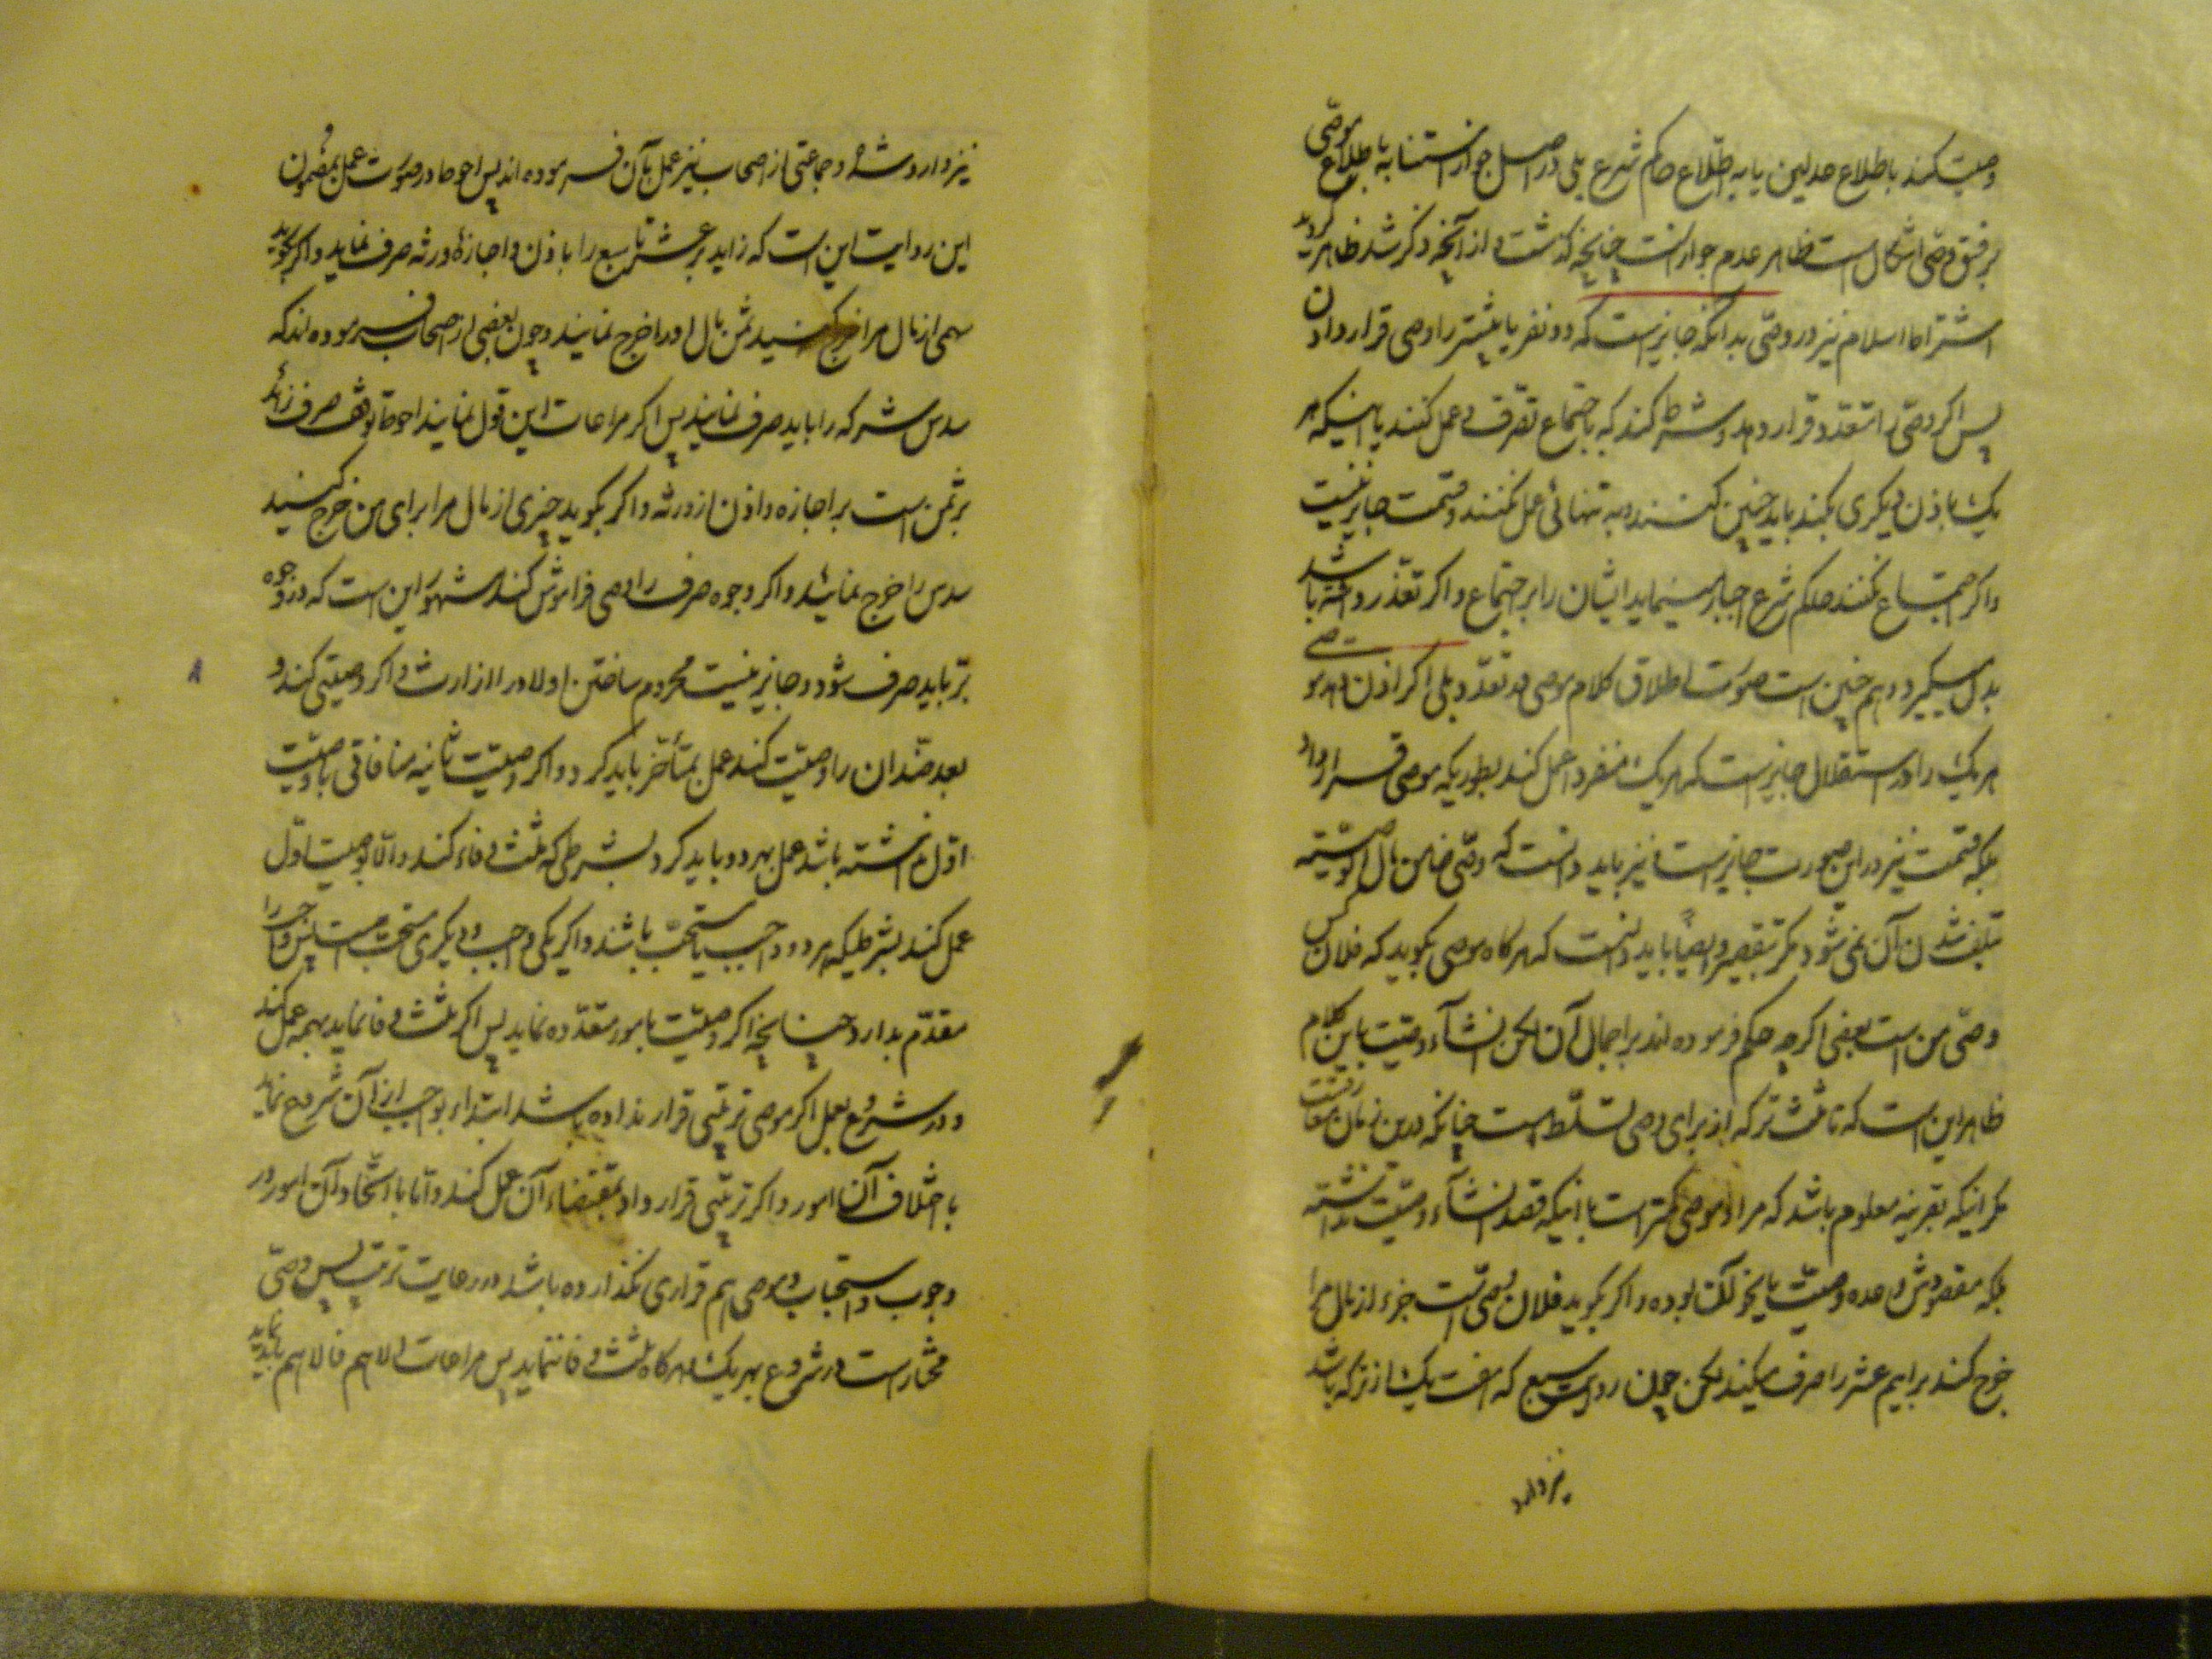 وصیت کند باطلاع عدلین یا به اطلاع حاکم شرع بلی در اصل جواز استنابه باطلاع موصی
بر فسق وصی اشکال است ظاهر عدم جواز است چنانچه گذشت و از آنچه ذکر شد ظاهر گردید
اشتراط اسلام نیز در وصی بدانکه جایز است که دو نفر یا بیشتر را وصی قرار دادن
پس اگر وصی را متعدد قرار دهد و شرط کند که باجتماع تصرف و عمل کنند یا اینکه هر
یک باذن دیگری بکند باید چنین کنند و به تنهائی عمل نکنند و قسمت جایز نیست
و اگر اجتماع نکنند حاکم شرع اجبار مینماید ایشان را بر اجتماع و اگر تعذر داشته باشد
بدل میگیرد و هم چنین است صورت اطلاق کلام موصی در تعدد بلی اگر اذن دهد موصی
هر یک را در استقلال جایز است که هر یک منفردا عمل کند بطوریکه موصی قرار داد
بلکه قسمت نیز در این صورت جایز است و نیز باید دانست که وصی ضامن مال الوصیه
تلف شدن آن نمی شود مگر بتقصیر و ایضا باید دانست که هر گاه موصی بگوید که فلان کس
وصی من است بعضی اگر چه حکم فرموده اند بر اجمال آن لکن انشآء وصیت باین کلام
ظاهر این است که تا ثلث ترکه از برای وصی تسلط است چنانکه در این زمان متعارفست
مگر اینکه بقرینه معلوم باشد که مراد موصی کمتر است یا اینکه قصد انشآء وصیت نداشته
بلکه مقصودش وعده وصیت یا نحو آن بوده و اگر بگوید فلان وصی است جزء از مال مرا
خرج کند برایم عشر را صرف میکند لکن چون روایت سبع که هفت یک از ترکه باشد
نیز وارد
نیز وارد شده و جماعتی از اصحاب نیز عمل بآن فرموده اند پس احوط در صورت عمل بمضمون
این روایت این است که زاید بر عشر تا سبع را با اذن و اجازهٔ ورثه صرف نماید و اگر بگوید
سهمی از مال مرا خرج کنید ثمن مال او را خرج نمایند و چون بعضی از اصحاب فرموده اند که
سدس ترکه را باید صرف نمایند پس اگر مراعات این قول نمایند احوط توقف صرف زائد
بر ثمن است بر اجازه و اذن از ورثه و اگر بگوید چیزی از مال مرا برای من خرج کنید
سدس را خرج نمایند و اگر وجوه صرف را وصی فراموش کند مشهور این است که در وجوه
بر باید صرف شود و جایز نیست محروم ساختن اولاد را از ارث و اگر وصیتی کند و
بعد ضد آن را وصیت کند عمل بمتأخر باید کرد و اگر وصیت ثانیه منافاتی با وصیت
اول نداشته باشد عمل بهر دو باید کرد بشرطی که ثلث وفاء کند و الا بوصیت اول
عمل کند بشرطیکه هر دو واجب یا مستحب باشند و اگر یکی واجب و دیگری مستحب است پس واجب را
مقدم بدارد چنانچه اگر وصیت بامور متعدده نماید پس اگر ثلث وفا نماید بهمه عمل کند
و در شروع بعمل اگر موصی ترتیبی قرار نداده باشد ابتداء بواجب از آن شروع نماید
با اختلاف آن امور و اگر ترتیبی قرار داد بمقتضاء آن عمل کند و اما با اتحاد آن امور در
وجوب و استحباب و موصی هم قراری نگذارده باشد در رعایت ترتیب پس وصی
مختار است در شروع بهر یک و هر گاه ثلث وفا ننماید پس مراعات الاهم فالاهم باید نماید